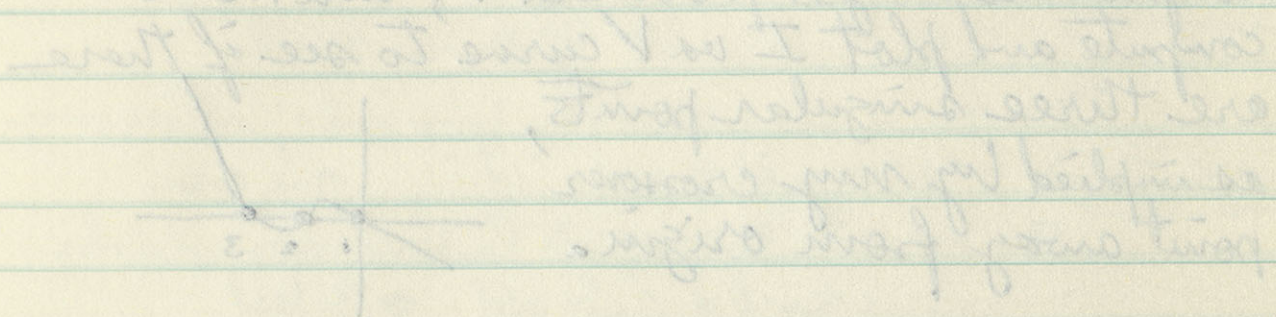 compute and plot I vs V curve to see if there
are three singular points,
as implied by my crossover
point away from origin.
1 2 3